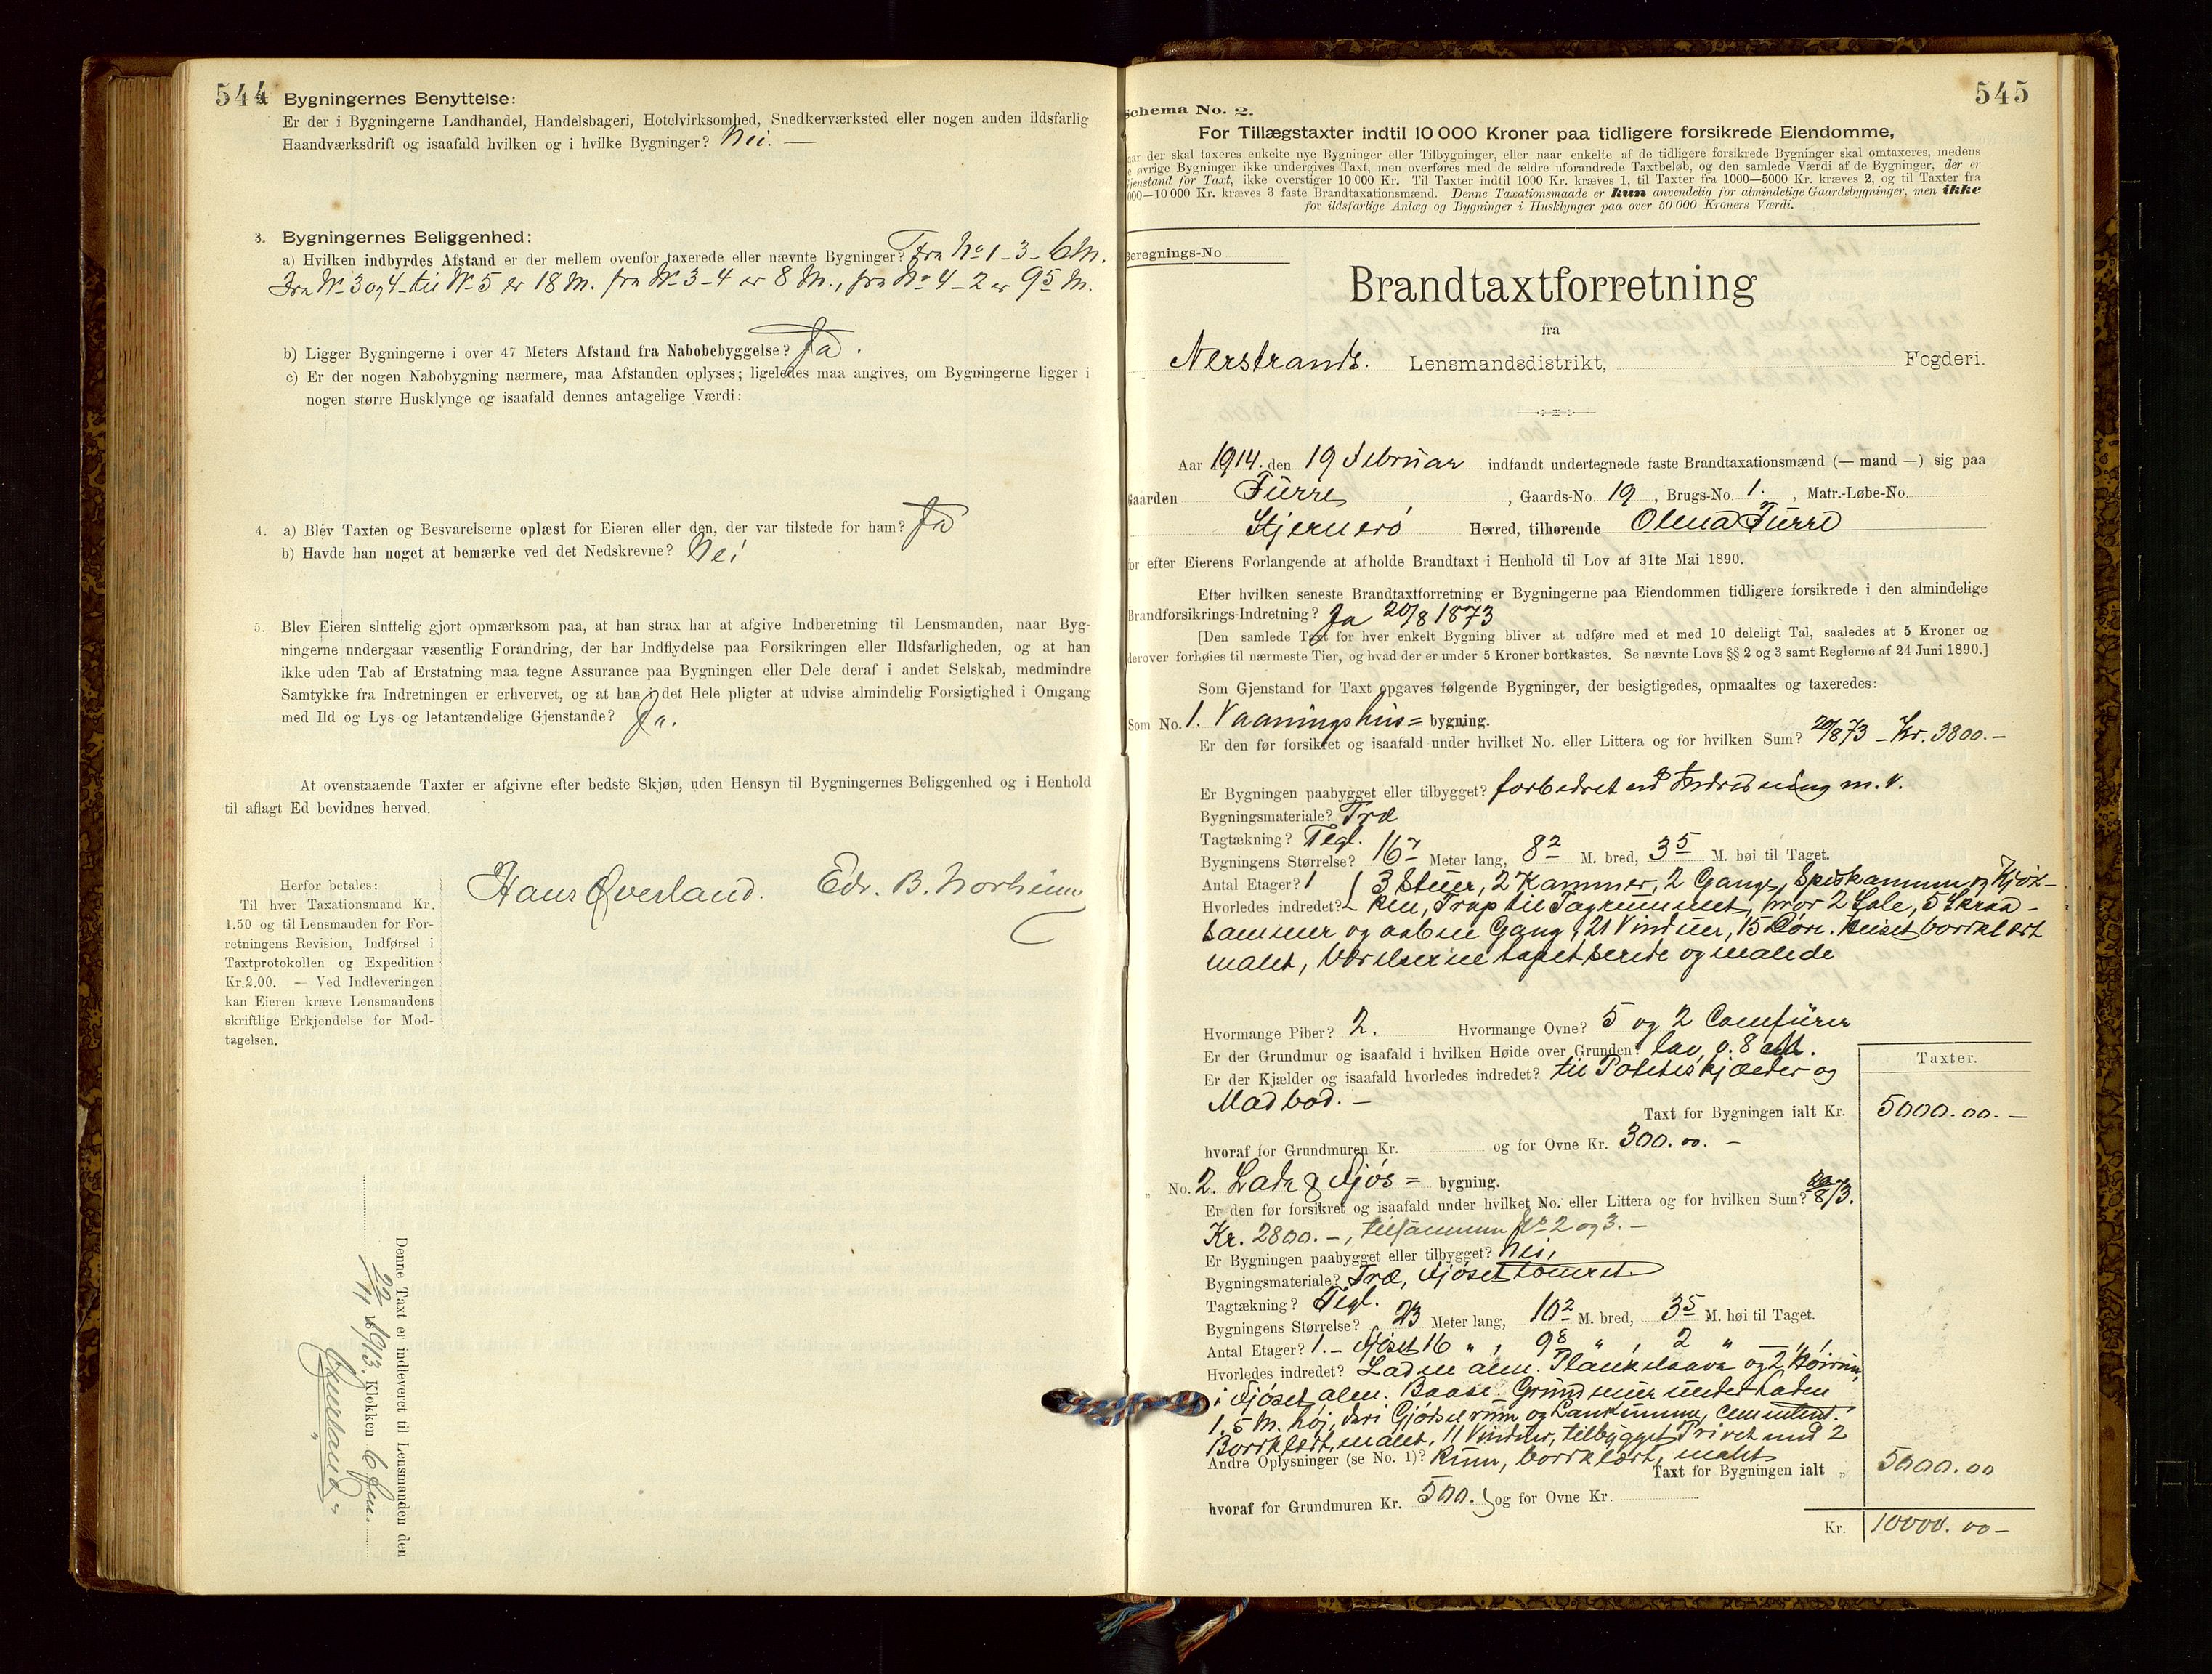 544
Bygningernes Benyttelse:
Er der i Bygningerne Landhandel, Handelsbageri, Hotelvirksomhed, Snedkerværksted eller nogen anden ildsfarlig
Haandværksdrift og isaafald hvilken og i hvilke Bygninger? Nei. —
3. Bygningernes Beliggenhed:
a) Hvilken indbyrdes Afstand er der mellem ovenfor taxerede eller nævnte Bygninger? Fra No 1 - 3 - 6 M.
Fra No 3 og 4 til No 5 er 18 M. fra No 3 - 4 er 8 M., fra No 4 - 2 er 95 M.
b) Ligger Bygningerne i over 47 Meters Afstand fra Nabobebyggelse? Ja.
c) Er der nogen Nabobygning nærmere, maa Afstanden oplyses; ligeledes maa angives, om Bygningerne ligger i
nogen større Husklynge og isaafald dennes antagelige Værdi:
4. a) Blev Taxten og Besvarelserne oplæst for Eieren eller den, der var tilstede for ham? Ja
b) Havde han noget at bemærke ved det Nedskrevne? Nei
5. Blev Eieren sluttelig gjort opmærksom paa, at han strax har at afgive Indberetning til Lensmanden, naar Byg-
ningerne undergaar væsentlig Forandring, der har Indflydelse paa Forsikringen eller Ildsfarligheden, og at han
ikke uden Tab af Erstatning maa tegne Assurance paa Bygningen eller Dele deraf i andet Selskab, medmindre
Samtykke fra Indretningen er erhvervet, og at han i det Hele pligter at udvise almindelig Forsigtighed i Omgang
med Ild og Lys og letantændelige Gjenstande? Ja.
At ovenstaaende Taxter er afgivne efter bedste Skjøn, uden Hensyn til Bygningernes Beliggenhed og i Henhold
til aflagt Ed bevidnes herved.
Hans Øverland. Edv. B. Norheim
Herfor betales:
Til hver Taxationsmand Kr.
1.50 og til Lensmanden for For-
retningens Revision, Indførsel i
Taxtprotokollen og Expedition
Kr.2.00. — Ved Indleveringen
kan Eieren kræve Lensmandens
skriftlige Erkjendelse for Mod-
tagelsen.
Denne Taxt er indleveret til Lensmanden den
22/11 1913. Klokken 6 fm.
545
Schema No. 2.
For Tillægstaxter indtil 10 000 Kroner paa tidligere forsikrede Eiendomme,
aar der skal taxeres enkelte nye Bygninger eller Tilbygninger, eller naar enkelte af de tidligere forsikrede Bygninger skal omtaxeres, medens
e øvrige Bygninger ikke undergives Taxt, men overføres med de ældre uforandrede Taxtbeløb, og den samlede Værdi af de Bygninger, der er
jenstand for Taxt, ikke overstiger 10 000 Kr. Til Taxter indtil 1000 Kr. kræves 1, til Taxter fra 1000—5000 Kr. kræves 2, og til Taxter fra
000—10 000 Kr. kræves 3 faste Brandtaxationsmænd. Denne Taxationsmaade er kun anvendelig for almindelige Gaardsbygninger, men ikke
for ildsfarlige Anlæg og Bygninger i Husklynger paa over 50 000 Kroners Værdi.
Beregnings-No
Brandtaxtforretning
fra
Nerstrands. Lensmandsdistrikt, Fogderi.
Aar 1914. den 19 Februar indfandt undertegnede faste Brandtaxationsmænd (— mand —) sig paa
Gaarden Furre, Gaards-No. 19, Brugs-No. 1., Matr.-Løbe-No.
Stjernerö Herred, tilhørende Olena Furre
for efter Eierens Forlangende at afholde Brandtaxt i Henhold til Lov af 31te Mai 1890.
Efter hvilken seneste Brandtaxtforretning er Bygningerne paa Eiendommen tidligere forsikrede i den almindelige
Brandforsikrings-Indretning? Ja 20/8 1873
[Den samlede Taxt for hver enkelt Bygning bliver at udføre med et med 10 deleligt Tal, saaledes at 5 Kroner og
derover forhøies til nærmeste Tier, og hvad der er under 5 Kroner bortkastes. Se nævnte Lovs §§ 2 og 3 samt Reglerne af 24 Juni 1890.]
Som Gjenstand for Taxt opgaves følgende Bygninger, der besigtigedes, opmaaltes og taxeredes:
Som No. 1. Vaaningshus = bygning.
Er den før forsikret og isaafald under hvilket No. eller Littera og for hvilken Sum? 20/8 73 - Kr. 3800.-
Er Bygningen paabygget eller tilbygget? forbedret ved Indredning m. v.
Bygningsmateriale? Træ
Tagtækning? Tegl.
Bygningens Størrelse? 167 Meter lang, 82 M. bred, 35 M. høi til Taget.
Antal Etager? 1 3 Stuer, 2 Kammer, 2 Gange, Spiskammer og Kjøk-
Hvorledes indredet? ken, Trap til Tagrummet, hvor 2 Sale, 5 Skraa-
kammer og aaben Gang, 21 Vinduer, 15 Døre. Huset bordklædt
malet, Værelserne tapetserede og malede
Hvormange Piber? 2. Hvormange Ovne? 5 og 2 Comfürer
Er der Grundmur og isaafald i hvilken Høide over Grunden? lav, 0.8 M.
Er der Kjælder og isaafald hvorledes indredet? til Potetkjælder og
Madbod. -
Taxter.
Taxt for Bygningen ialt Kr. 5000.00. —
hvoraf for Grundmuren Kr. og for Ovne Kr. 300.00. -
" No. 2. Lade & Fjøs = bygning.
Er den før forsikret og isaafald under hvilket No. eller Littera og for hvilken Sum? 20/8 73.
Kr. 2800. -, tilsammen No 2 og 3. -
Er Bygningen paabygget eller tilbygget? Nei,
Bygningsmateriale? Træ, Fjøset tømret.
Tagtækning? Tegl.
Bygningens Størrelse? 23 Meter lang, 102 M. bred, 35 M. høi til Taget.
Antal Etager? 1. - Fjøset 16 " , 98 " , 2 " —
Hvorledes indredet? Laden alm. Plankelaave og 2 Høirum,
i Fjøset alm. Baase. Grundmur under Laden
1.5 M. høj, deri Gjødselrum og Landkumme, cementeret.
Bordklædt, malet, 11 Vinduer, tilbygget Privet med 2
Andre Oplysninger (se No. 1)? Rum, bordklædt, malet
Taxt for Bygningen ialt „ 5000.00
hvoraf for Grundmuren Kr. 500. og for Ovne Kr.
Kr. 10000.00-